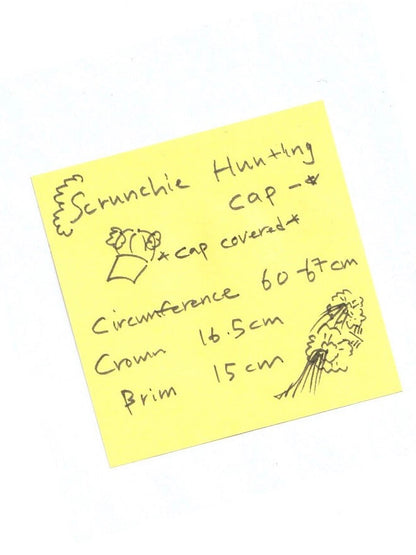 Scrunchie Hunting
cap -*
*cap covered*
Circumference 60-67cm
Crown 16.5cm
Brim 15cm